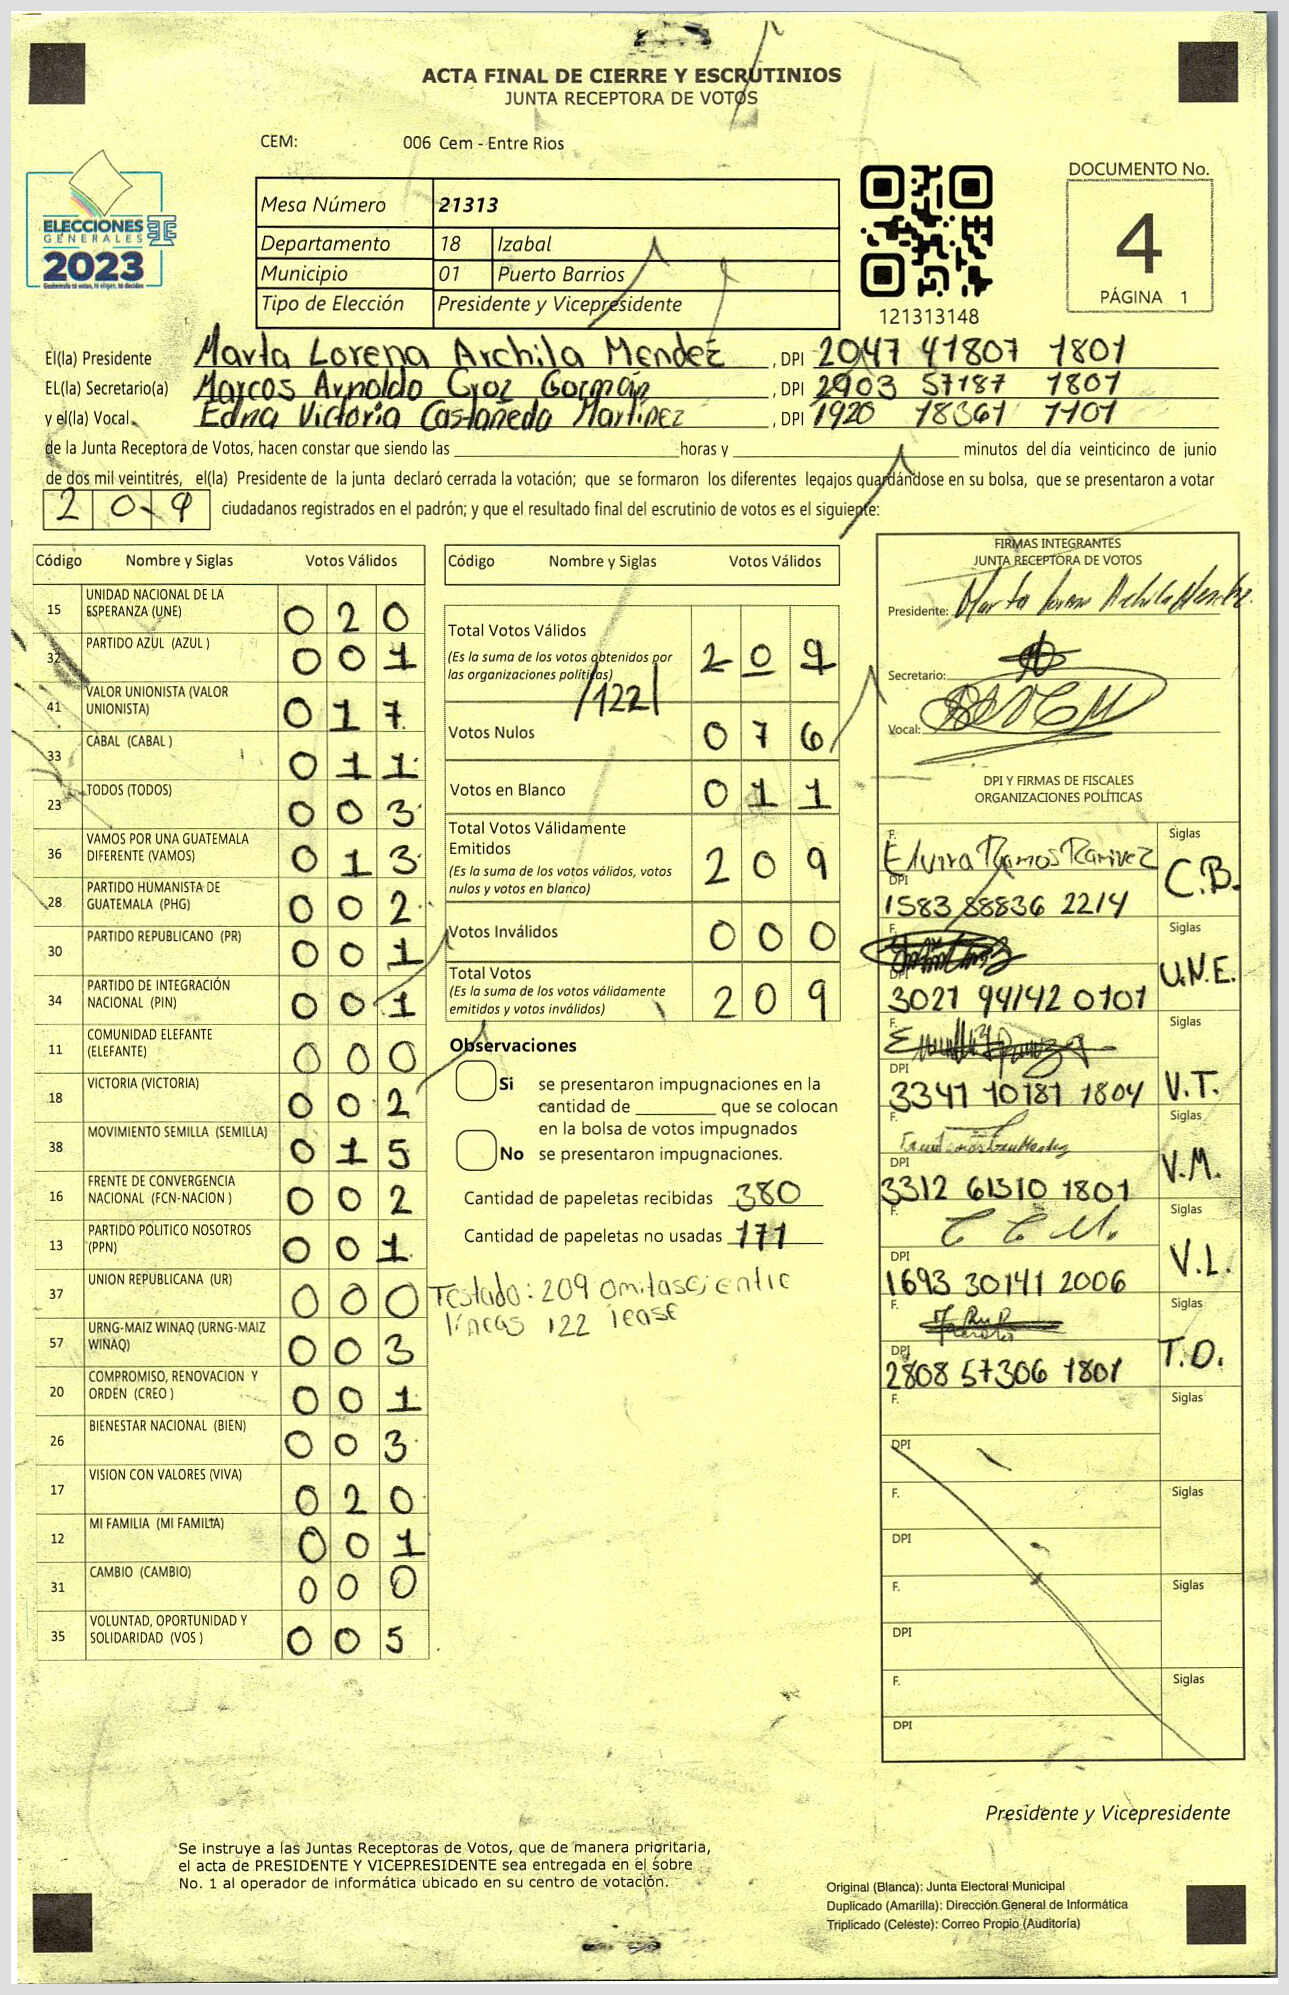 ACTA FINAL DE CIERRE Y ESCRUTINIOS
JUNTA RECEPTORA DE VOTOS
CEM: 006 Cem - Entre Rios
ELECCIONES
GENERALES
2023
Guatemala tú votas, tú eliges, tú decides
Mesa Número 21313
Departamento 18 Izabal
Municipio 01 Puerto Barrios
Tipo de Elección Presidente y Vicepresidente
121313148
DOCUMENTO No.
4
PÁGINA 1
El(la) Presidente Marta Lorena Archila Mendez, DPI 2047 41807 1801
EL(la) Secretario(a) Marcos Arnoldo Croz Gormán, DPI 2903 57187 1801
y el(la) Vocal Edna Victoria Castañeda Martinez, DPI 1920 18361 1101
de la Junta Receptora de Votos, hacen constar que siendo las horas y minutos del día veinticinco de junio
de dos mil veintitrés, el(la) Presidente de la junta declaró cerrada la votación; que se formaron los diferentes legajos guardándose en su bolsa, que se presentaron a votar
209 ciudadanos registrados en el padrón; y que el resultado final del escrutinio de votos es el siguiente:
Código Nombre y Siglas Votos Válidos
15 UNIDAD NACIONAL DE LA ESPERANZA (UNE) 020
32 PARTIDO AZUL (AZUL ) 001
41 VALOR UNIONISTA (VALOR UNIONISTA) 017
33 CABAL (CABAL ) 011
23 TODOS (TODOS) 003
36 VAMOS POR UNA GUATEMALA DIFERENTE (VAMOS) 013
28 PARTIDO HUMANISTA DE GUATEMALA (PHG) 002
30 PARTIDO REPUBLICANO (PR) 001
34 PARTIDO DE INTEGRACIÓN NACIONAL (PIN) 001
11 COMUNIDAD ELEFANTE (ELEFANTE) 000
18 VICTORIA (VICTORIA) 002
38 MOVIMIENTO SEMILLA (SEMILLA) 015
16 FRENTE DE CONVERGENCIA NACIONAL (FCN-NACION ) 002
13 PARTIDO POLITICO NOSOTROS (PPN) 001
37 UNION REPUBLICANA (UR) 000
57 URNG-MAIZ WINAQ (URNG-MAIZ WINAQ) 003
20 COMPROMISO, RENOVACION Y ORDEN (CREO ) 001
26 BIENESTAR NACIONAL (BIEN) 003
17 VISION CON VALORES (VIVA) 020
12 MI FAMILIA (MI FAMILIA) 001
31 CAMBIO (CAMBIO) 000
35 VOLUNTAD, OPORTUNIDAD Y SOLIDARIDAD (VOS ) 005
Código Nombre y Siglas Votos Válidos
Total Votos Válidos 209
(Es la suma de los votos obtenidos por
las organizaciones políticas)
/122/
Votos Nulos 076
Votos en Blanco 011
Total Votos Válidamente
Emitidos 209
(Es la suma de los votos válidos, votos
nulos y votos en blanco)
Votos Inválidos 000
Total Votos 209
(Es la suma de los votos válidamente
emitidos y votos inválidos)
Observaciones
Si se presentaron impugnaciones en la
cantidad de que se colocan
en la bolsa de votos impugnados
No se presentaron impugnaciones.
Cantidad de papeletas recibidas 380
Cantidad de papeletas no usadas 171
Testado: 209 omitase; entre
líneas 122 lease
FIRMAS INTEGRANTES
JUNTA RECEPTORA DE VOTOS
Presidente:
Secretario:
Vocal:
DPI Y FIRMAS DE FISCALES
ORGANIZACIONES POLÍTICAS
F. Elvira Ramos Ramirez Siglas C.B.
DPI 1583 88836 2214
F. Siglas U.N.E.
DPI 3021 94142 0101
F. Siglas V.T.
DPI 3341 10181 1804
F. Siglas V.M.
DPI 3312 61510 1801
F. C C M. Siglas V.L.
DPI 1693 30141 2006
F. Siglas T.D.
DPI 2808 57306 1801
F. Siglas
DPI
F. Siglas
DPI
F. Siglas
DPI
F. Siglas
DPI
Presidente y Vicepresidente
Se instruye a las Juntas Receptoras de Votos, que de manera prioritaria,
el acta de PRESIDENTE Y VICEPRESIDENTE sea entregada en el sobre
No. 1 al operador de informática ubicado en su centro de votación.
Original (Blanca): Junta Electoral Municipal
Duplicado (Amarilla): Dirección General de Informática
Triplicado (Celeste): Correo Propio (Auditoría)